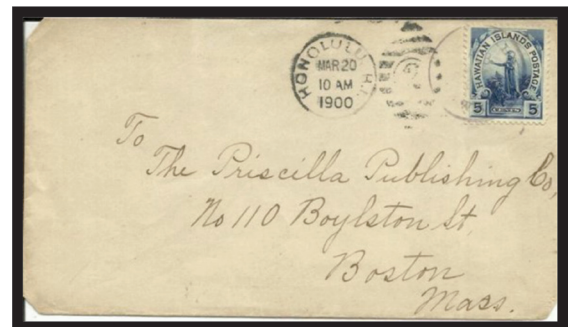 HONOLULU H.I.
MAR 20
10 AM
1900
HAWAIIAN ISLANDS POSTAGE
5 5
To
The Priscilla Publishing Co,
No 110 Boylston St,
Boston
Mass.